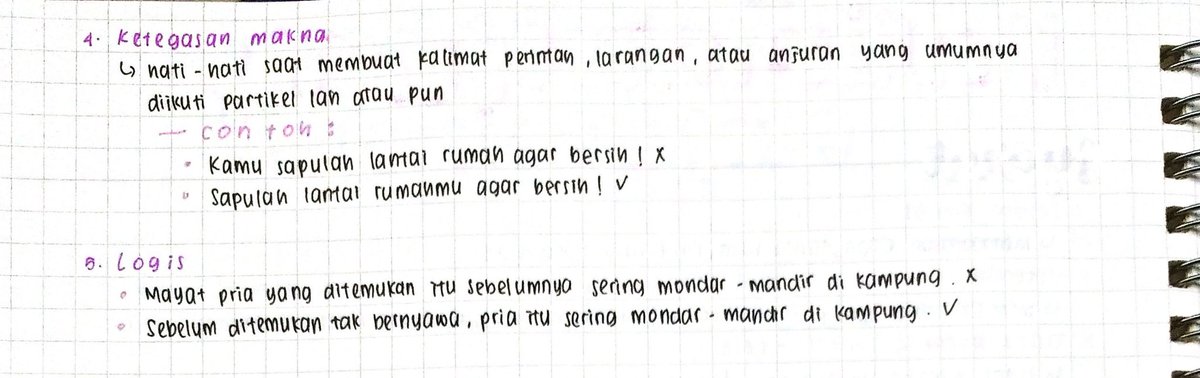 4. Ketegasan makna
↳ hati-hati saat membuat kalimat perintah, larangan, atau anjuran yang umumnya
diikuti partikel lah atau pun
— contoh:
• Kamu sapulah lantai rumah agar bersih! x
• Sapulah lantai rumahmu agar bersih! ✓
5. Logis
• Mayat pria yang ditemukan itu sebelumnya sering mondar-mandir di kampung. x
• Sebelum ditemukan tak bernyawa, pria itu sering mondar-mandir di kampung. ✓